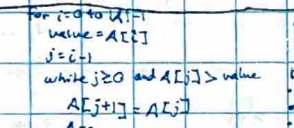 for i=0 to |A|-1
value = A[i]
j=i-1
while j≥0 and A[j] > value
A[j+1] = A[j]